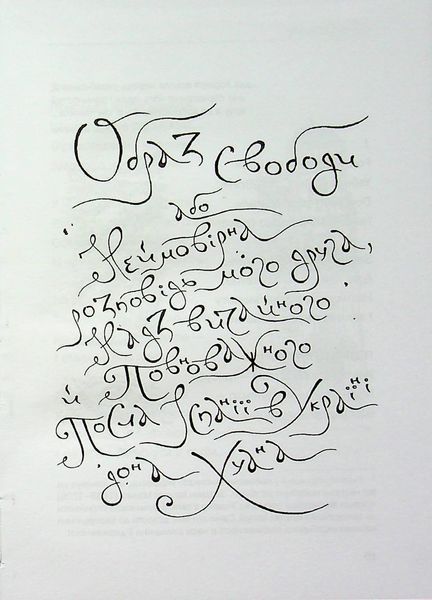 Образ Свободи
або
Неймовірна
розповідь мого друга,
Надзвичайного
й Повноважного
Посла Іспанії в Україні
дона Хуана